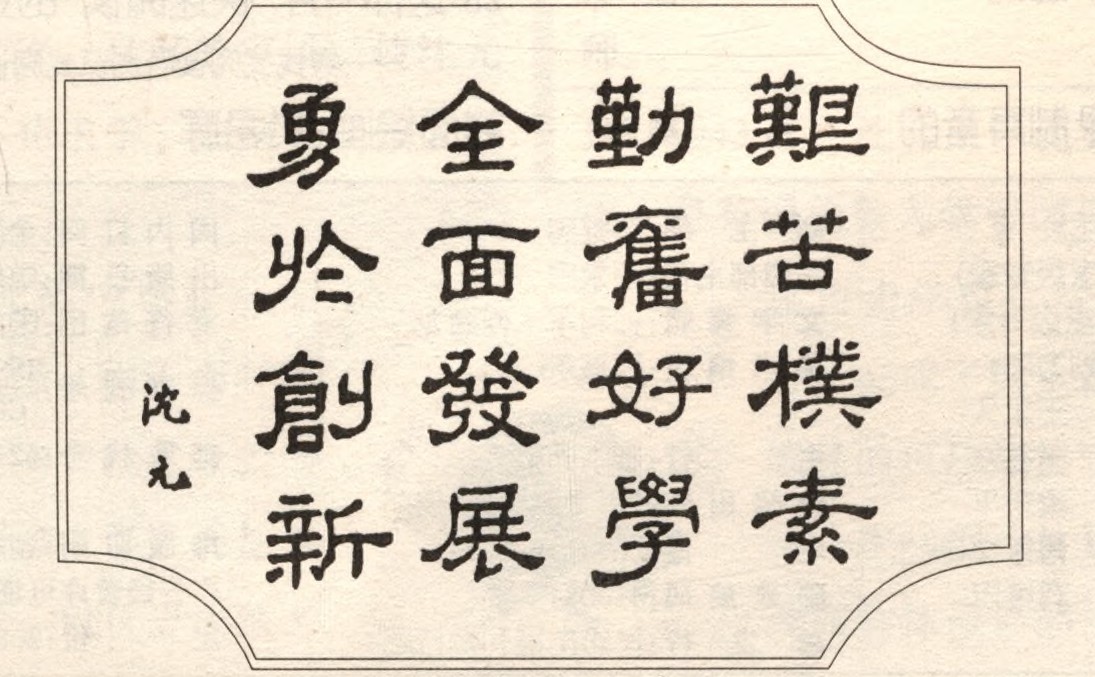 艱苦樸素
勤奮好學
全面發展
勇於創新
沈元